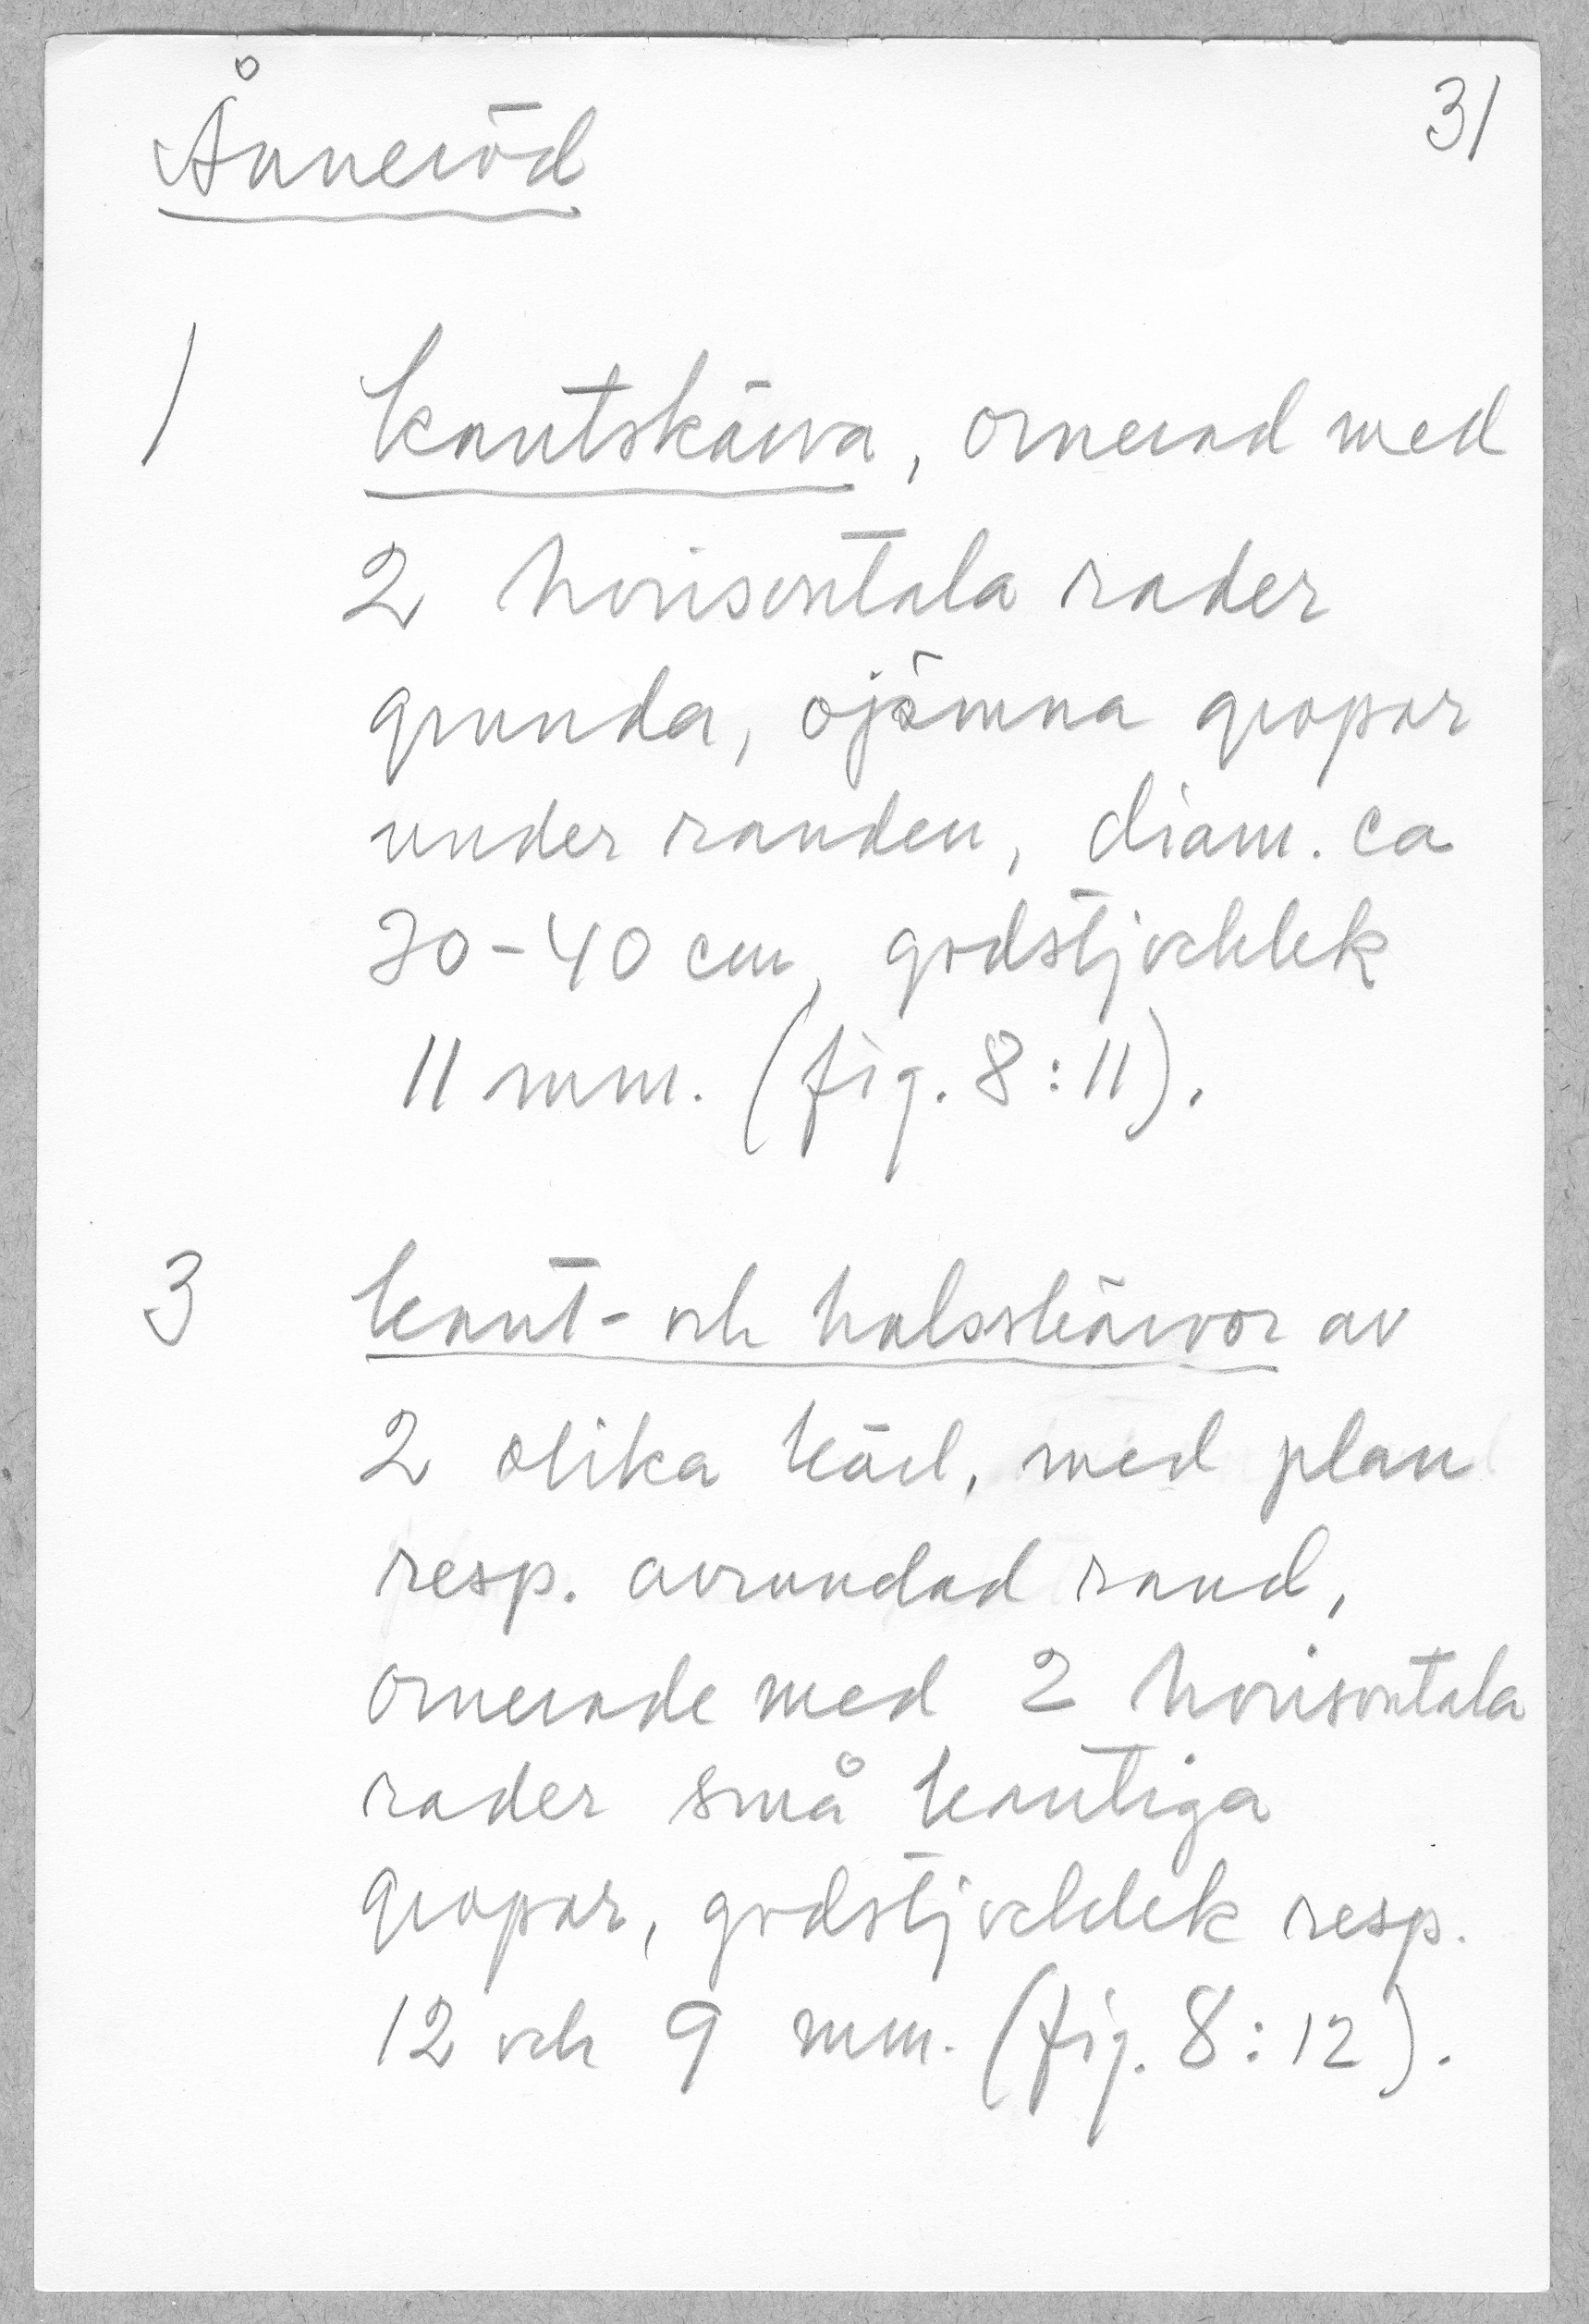 Ånneröd
31
1 kantskärva, ornerad med
2 horisontala rader
grunda, ojämna gropar
under randen, diam. ca
30-40 cm, godstjocklek
11 mm. (fig. 8:11).
3 kant- och halsskärvor av
2 olika kärl, med plan
resp. avrundad rand,
ornerade med 2 horisontala
rader små kantiga
gropar, godstjocklek resp.
12 och 9 mm. (fig. 8:12).